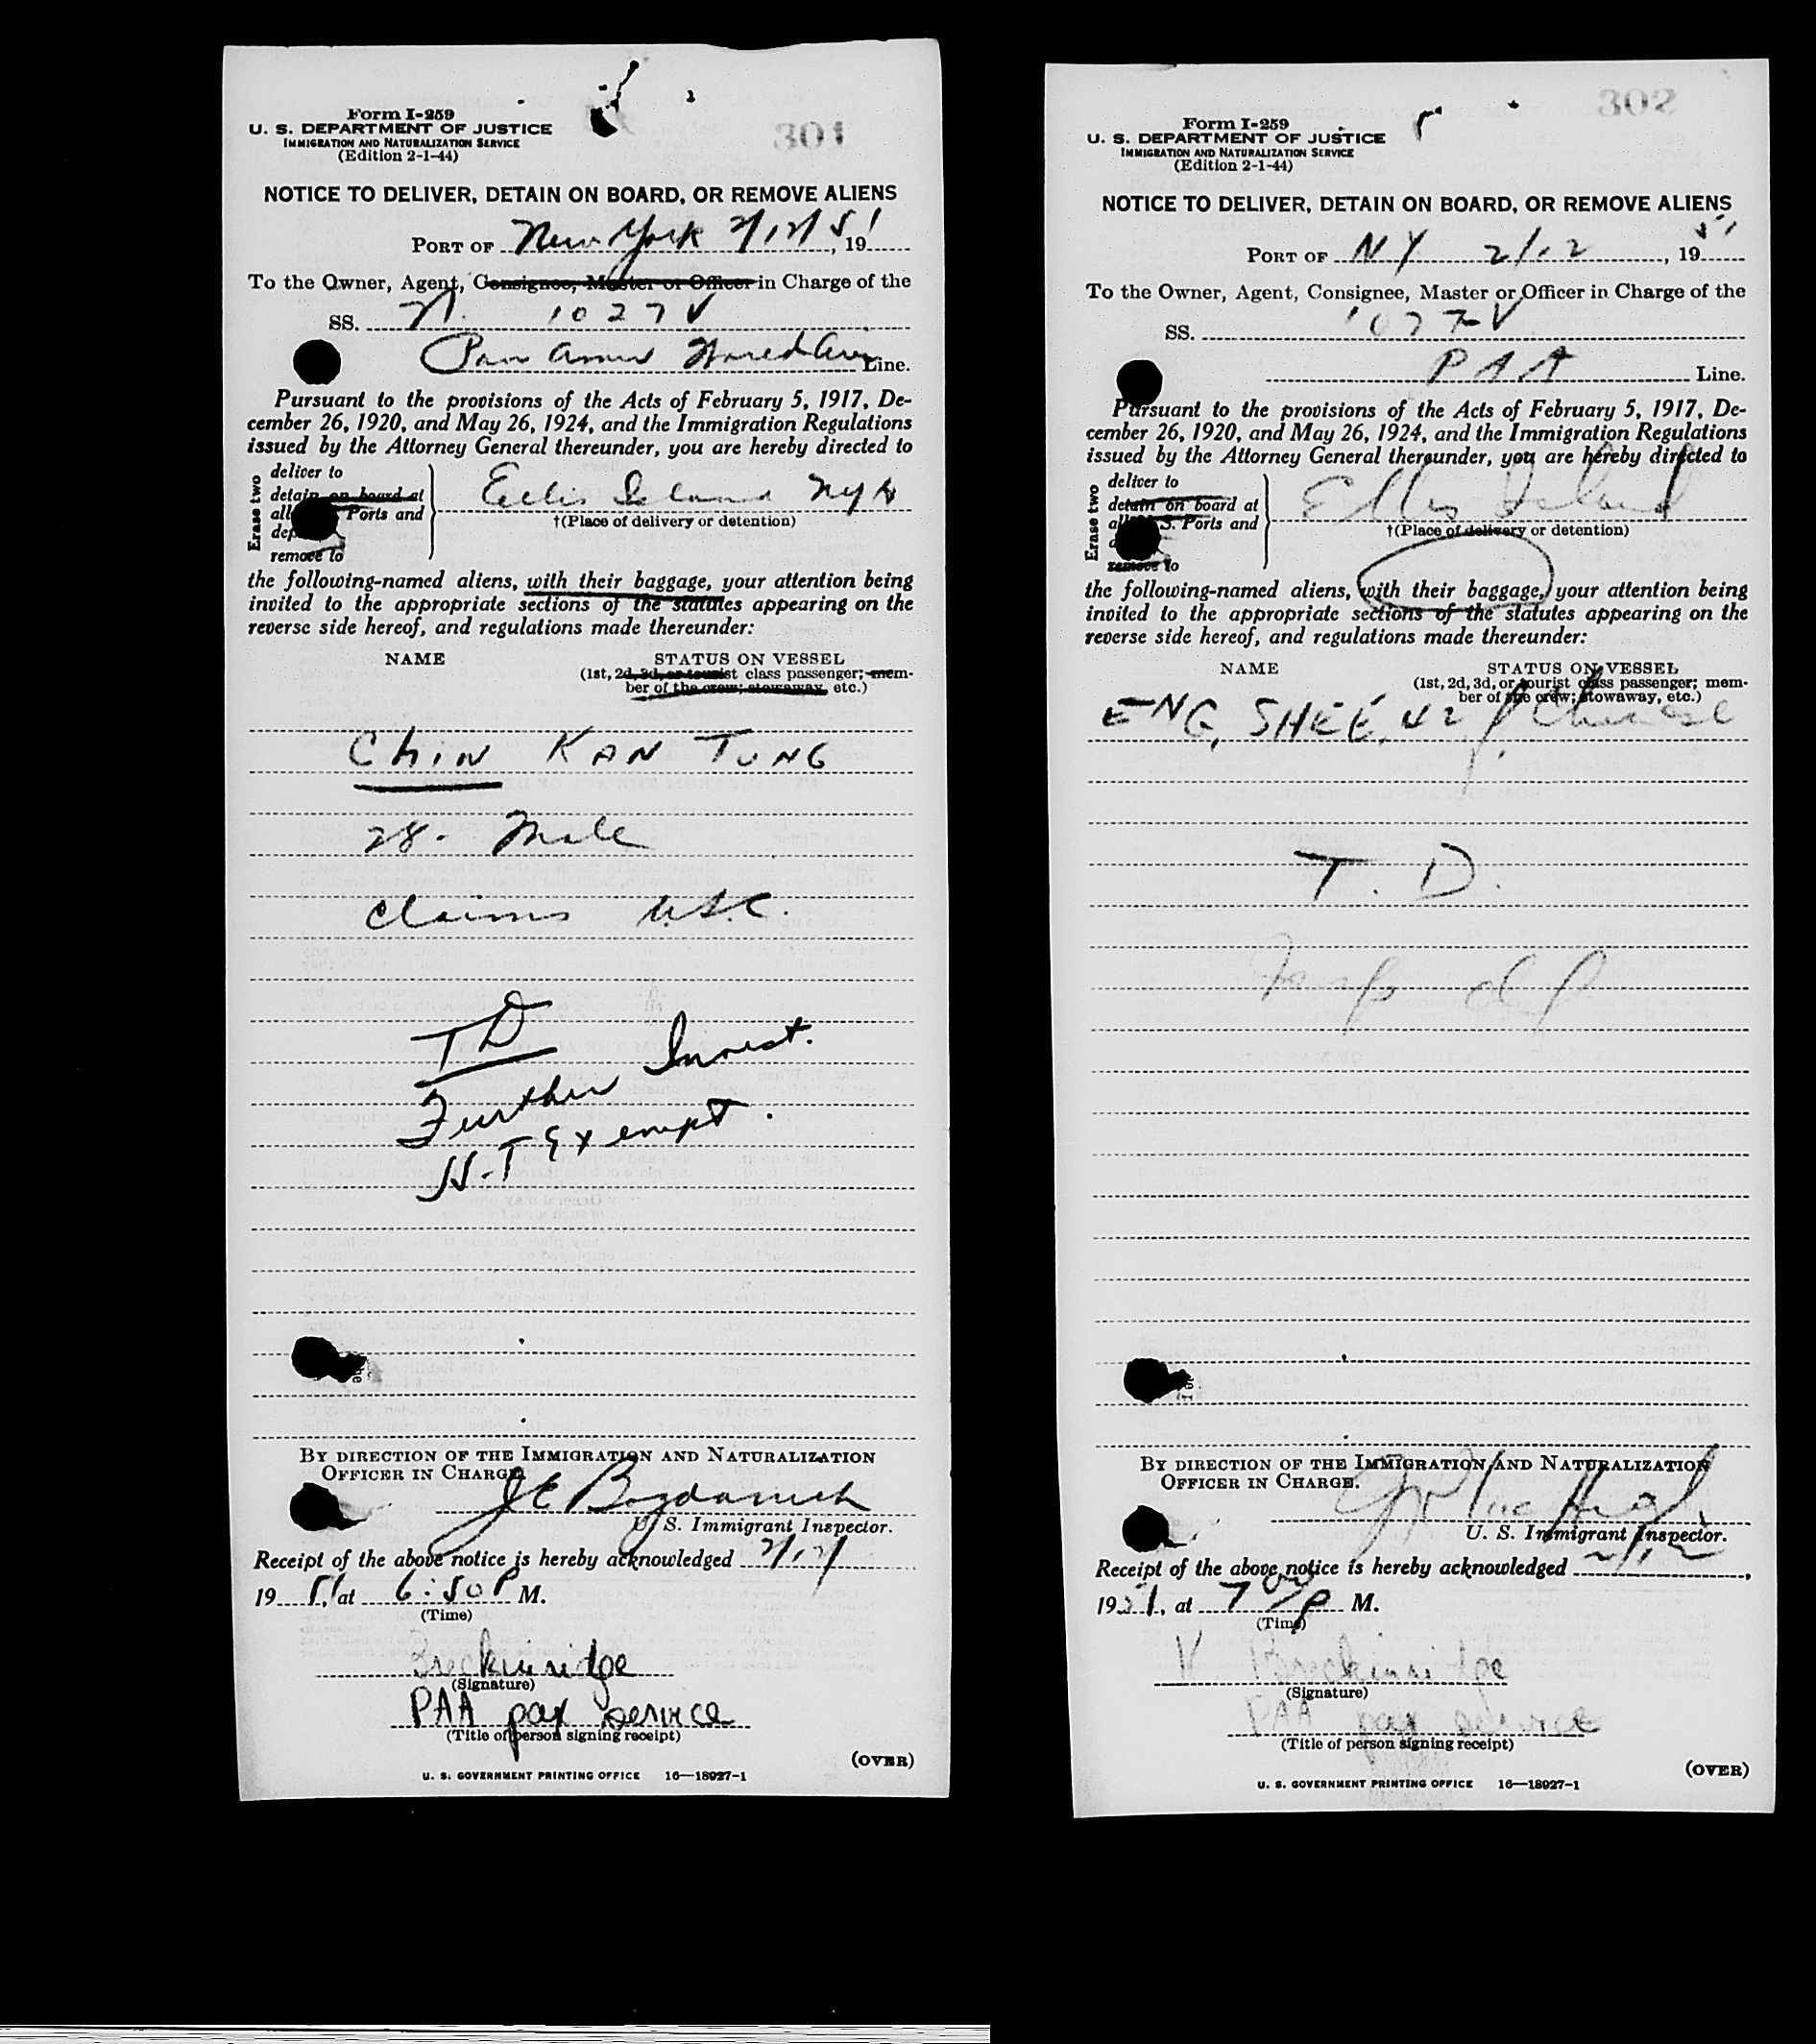 301
Form I-259
U. S. DEPARTMENT OF JUSTICE
IMMIGRATION AND NATURALIZATION SERVICE
(Edition 2-1-44)
NOTICE TO DELIVER, DETAIN ON BOARD, OR REMOVE ALIENS
PORT OF New York 2/12/51, 19
To the Owner, Agent, Consignee, Master or Officer in Charge of the
SS. N. 1027V
Pan Amer World Air Line.
Pursuant to the provisions of the Acts of February 5, 1917, De-
cember 26, 1920, and May 26, 1924, and the Immigration Regulations
issued by the Attorney General thereunder, you are hereby directed to
Erase two
deliver to
detain on board at
all Ports and
remove to
Ellis Island NYH
†(Place of delivery or detention)
the following-named aliens, with their baggage, your attention being
invited to the appropriate sections of the statutes appearing on the
reverse side hereof, and regulations made thereunder:
NAME STATUS ON VESSEL
(1st, 2d, 3d, or tourist class passenger; mem-
ber of the crew; stowaway, etc.)
Chin KAN TUNG
28 - Male
claims U.S.C.
TD
Further Invest.
H-T Exempt.
BY DIRECTION OF THE IMMIGRATION AND NATURALIZATION
OFFICER IN CHARGE.
U. S. Immigrant Inspector.
Receipt of the above notice is hereby acknowledged 2/12/
1951, at 6:50 P M.
(Time)
Breckinridge
(Signature)
PAA pax service
(Title of person signing receipt)
(OVER)
U. S. GOVERNMENT PRINTING OFFICE 16—18927-1
302
Form I-259
U. S. DEPARTMENT OF JUSTICE
IMMIGRATION AND NATURALIZATION SERVICE
(Edition 2-1-44)
NOTICE TO DELIVER, DETAIN ON BOARD, OR REMOVE ALIENS
PORT OF NY 2/12, 1951
To the Owner, Agent, Consignee, Master or Officer in Charge of the
SS. 1027V
PAA Line.
Pursuant to the provisions of the Acts of February 5, 1917, De-
cember 26, 1920, and May 26, 1924, and the Immigration Regulations
issued by the Attorney General thereunder, you are hereby directed to
Erase two
deliver to
detain on board at
S. Ports and
remove to
Ellis Island
†(Place of delivery or detention)
the following-named aliens, with their baggage, your attention being
invited to the appropriate sections of the statutes appearing on the
reverse side hereof, and regulations made thereunder:
NAME STATUS ON VESSEL
(1st, 2d, 3d, or tourist class passenger; mem-
ber of the crew; stowaway, etc.)
ENG, SHEE, 42 f. Chinese
T. D.
BY DIRECTION OF THE IMMIGRATION AND NATURALIZATION
OFFICER IN CHARGE.
U. S. Immigrant Inspector.
Receipt of the above notice is hereby acknowledged 2/12,
1951, at 7 00 p M.
(Time)
V Breckinridge
(Signature)
PAA pax service
(Title of person signing receipt)
(OVER)
U. S. GOVERNMENT PRINTING OFFICE 16—18927-1